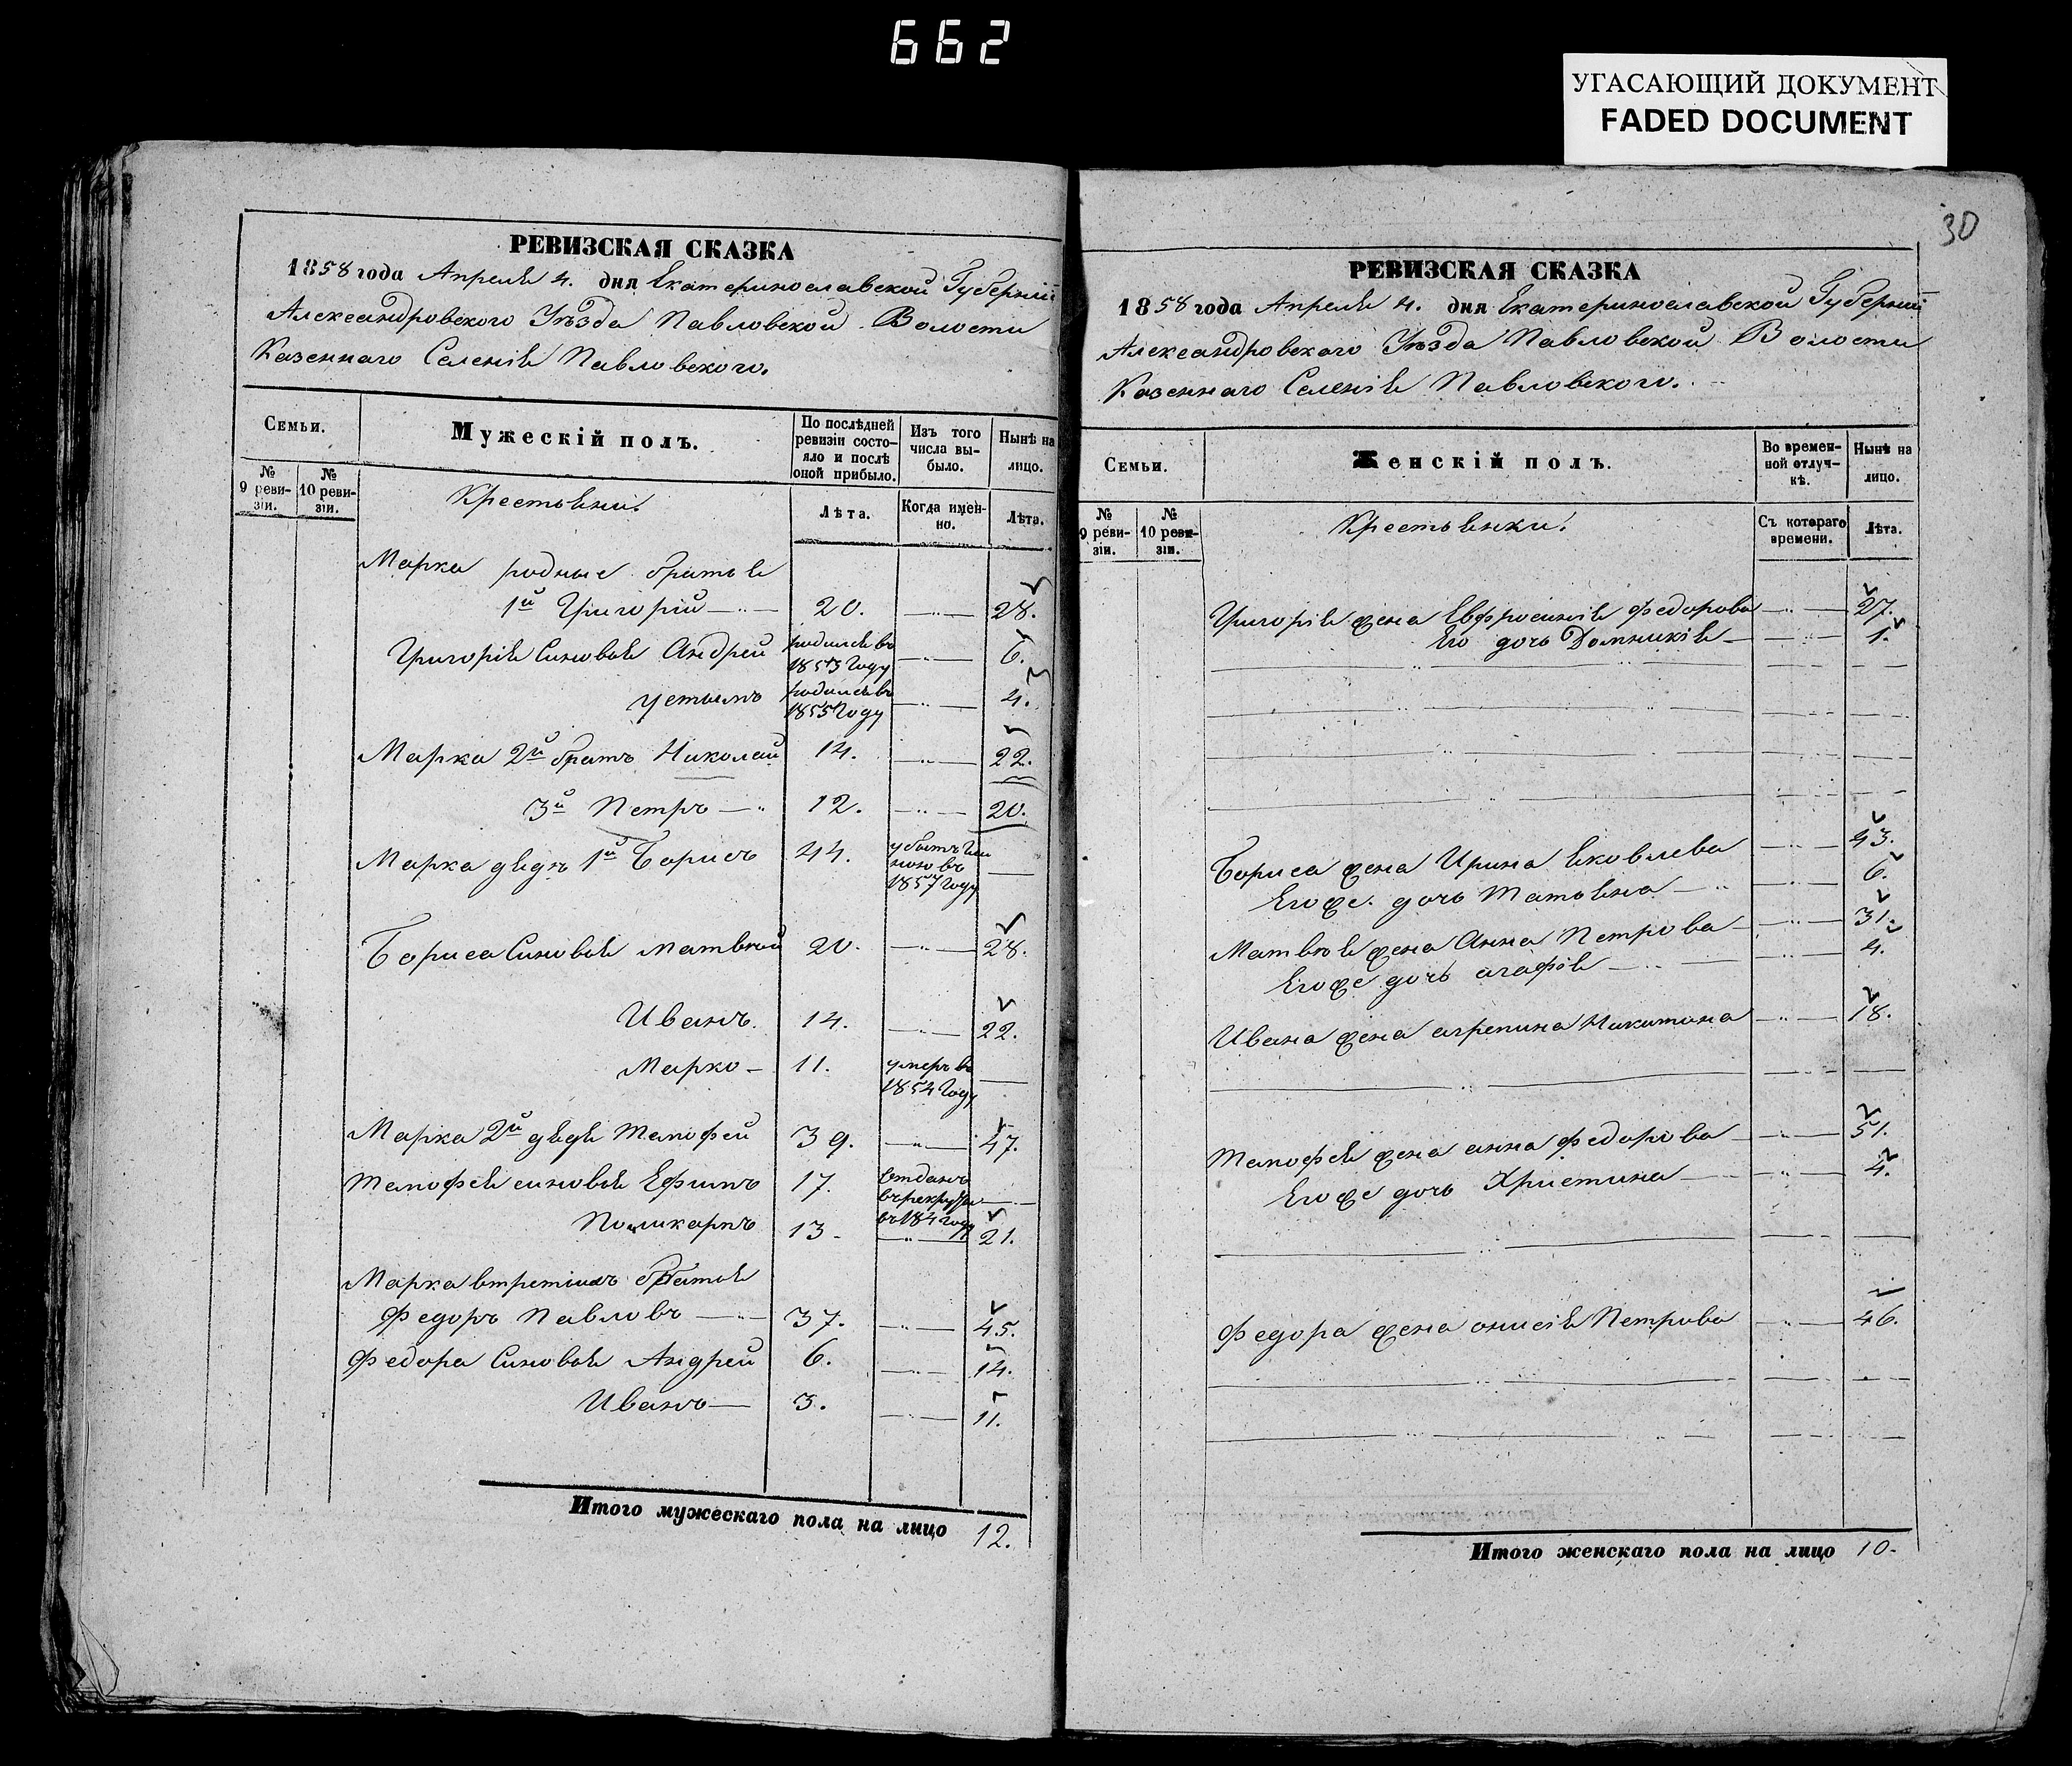 662
УГАСАЮЩИЙ ДОКУМЕНТ
FADED DOCUMENT
РЕВИЗСКАЯ СКАЗКА
1858 года Апреля 4. дня Екатеринославской Губерніи
Александровского Уѣзда Павловской Волости
Казеннаго Селенія Павловского.
Семьи.
Мужескій полъ.
По послѣдней ревизіи состояло и послѣ оной прибыло.
Изъ того числа выбыло.
Нынѣ на лицо.
№ 9 ревизіи.
№ 10 ревизіи.
Крестьяни.
Лѣта.
Когда именно.
Лѣта.
Марка родные братья
1й Григорій 20. 28.
Григорія Синовья Андрей родился въ 1853 Году 6.
Устимъ родился въ 1855 Году 4.
Марка 2й братъ Николай 14. 22.
3й Петръ 12. 20.
Марка дядъ 1й Борисъ 44. 1857 Году
Бориса Синовья Матвѣй 20. 28.
Иванъ. 14. 22.
Марко 11. умеръ въ 1854 Году
Марка 2й дядя Тимофей 39. 47.
Тимофея синовья Ефимъ 17. отданъ въ рекруты въ 184 Году
Поликарпъ 13. 21.
Марка втретихъ братья
Федоръ Павловъ 37. 45.
Федора Синовья Андрей 6. 14.
Иванъ 3. 11.
Итого мужескаго пола на лицо 12.
30
РЕВИЗСКАЯ СКАЗКА
1858 года Апреля 4. дня Екатеринославской Губерніи
Александровскаго Уѣзда Павловской Волости
Казеннаго Селенія Павловского.
Семьи.
Женскій полъ.
Во временной отлучкѣ.
Нынѣ на лицо.
№ 9 ревизіи.
№ 10 ревизіи.
Крестьянки.
Съ котораго времени.
Лѣта.
Григорія жена Евфросинія Федорова 27.
Его дочь Домникія 1.
Бориса жена Ирина Яковлева 43.
Его же дочь Татьяна 6.
Матвѣя жена Анна Петрова 31.
Его же дочь агафія 4.
Ивана жена агрепина Никитина 18.
Тимофея жена анна Федорова 51.
Его же дочь Христина 4.
Федора жена онисія Петрова 46.
Итого женскаго пола на лицо 10.